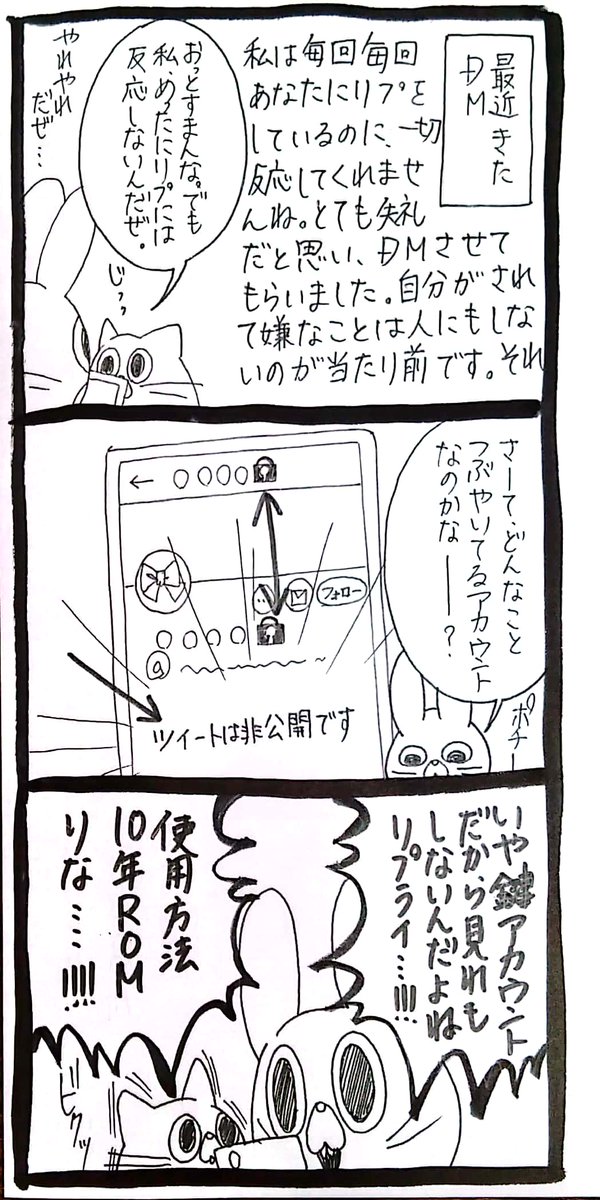 最近きた
DM
私は毎回毎回
あなたにリプを
しているのに、一切
反応してくれませ
んね。とても失礼
だと思い、DMさせて
もらいました。自分がされ
て嫌なことは人にもしな
いのが当たり前です。それ
おっとすまんな。でも
私、めったにリプには
反応しないんだぜ。
やれやれ
だぜ…
じっ
さーて、どんなこと
つぶやいてるアカウント
なのかなー?
ポチー
← 〇〇〇〇
フォロー
〇〇〇〇
@
ツイートは非公開です
いや鍵アカウント
だから見れも
しないんだよね
リプライ…!!!
使用方法
10年ROM
りな……!!!!
ビクッ